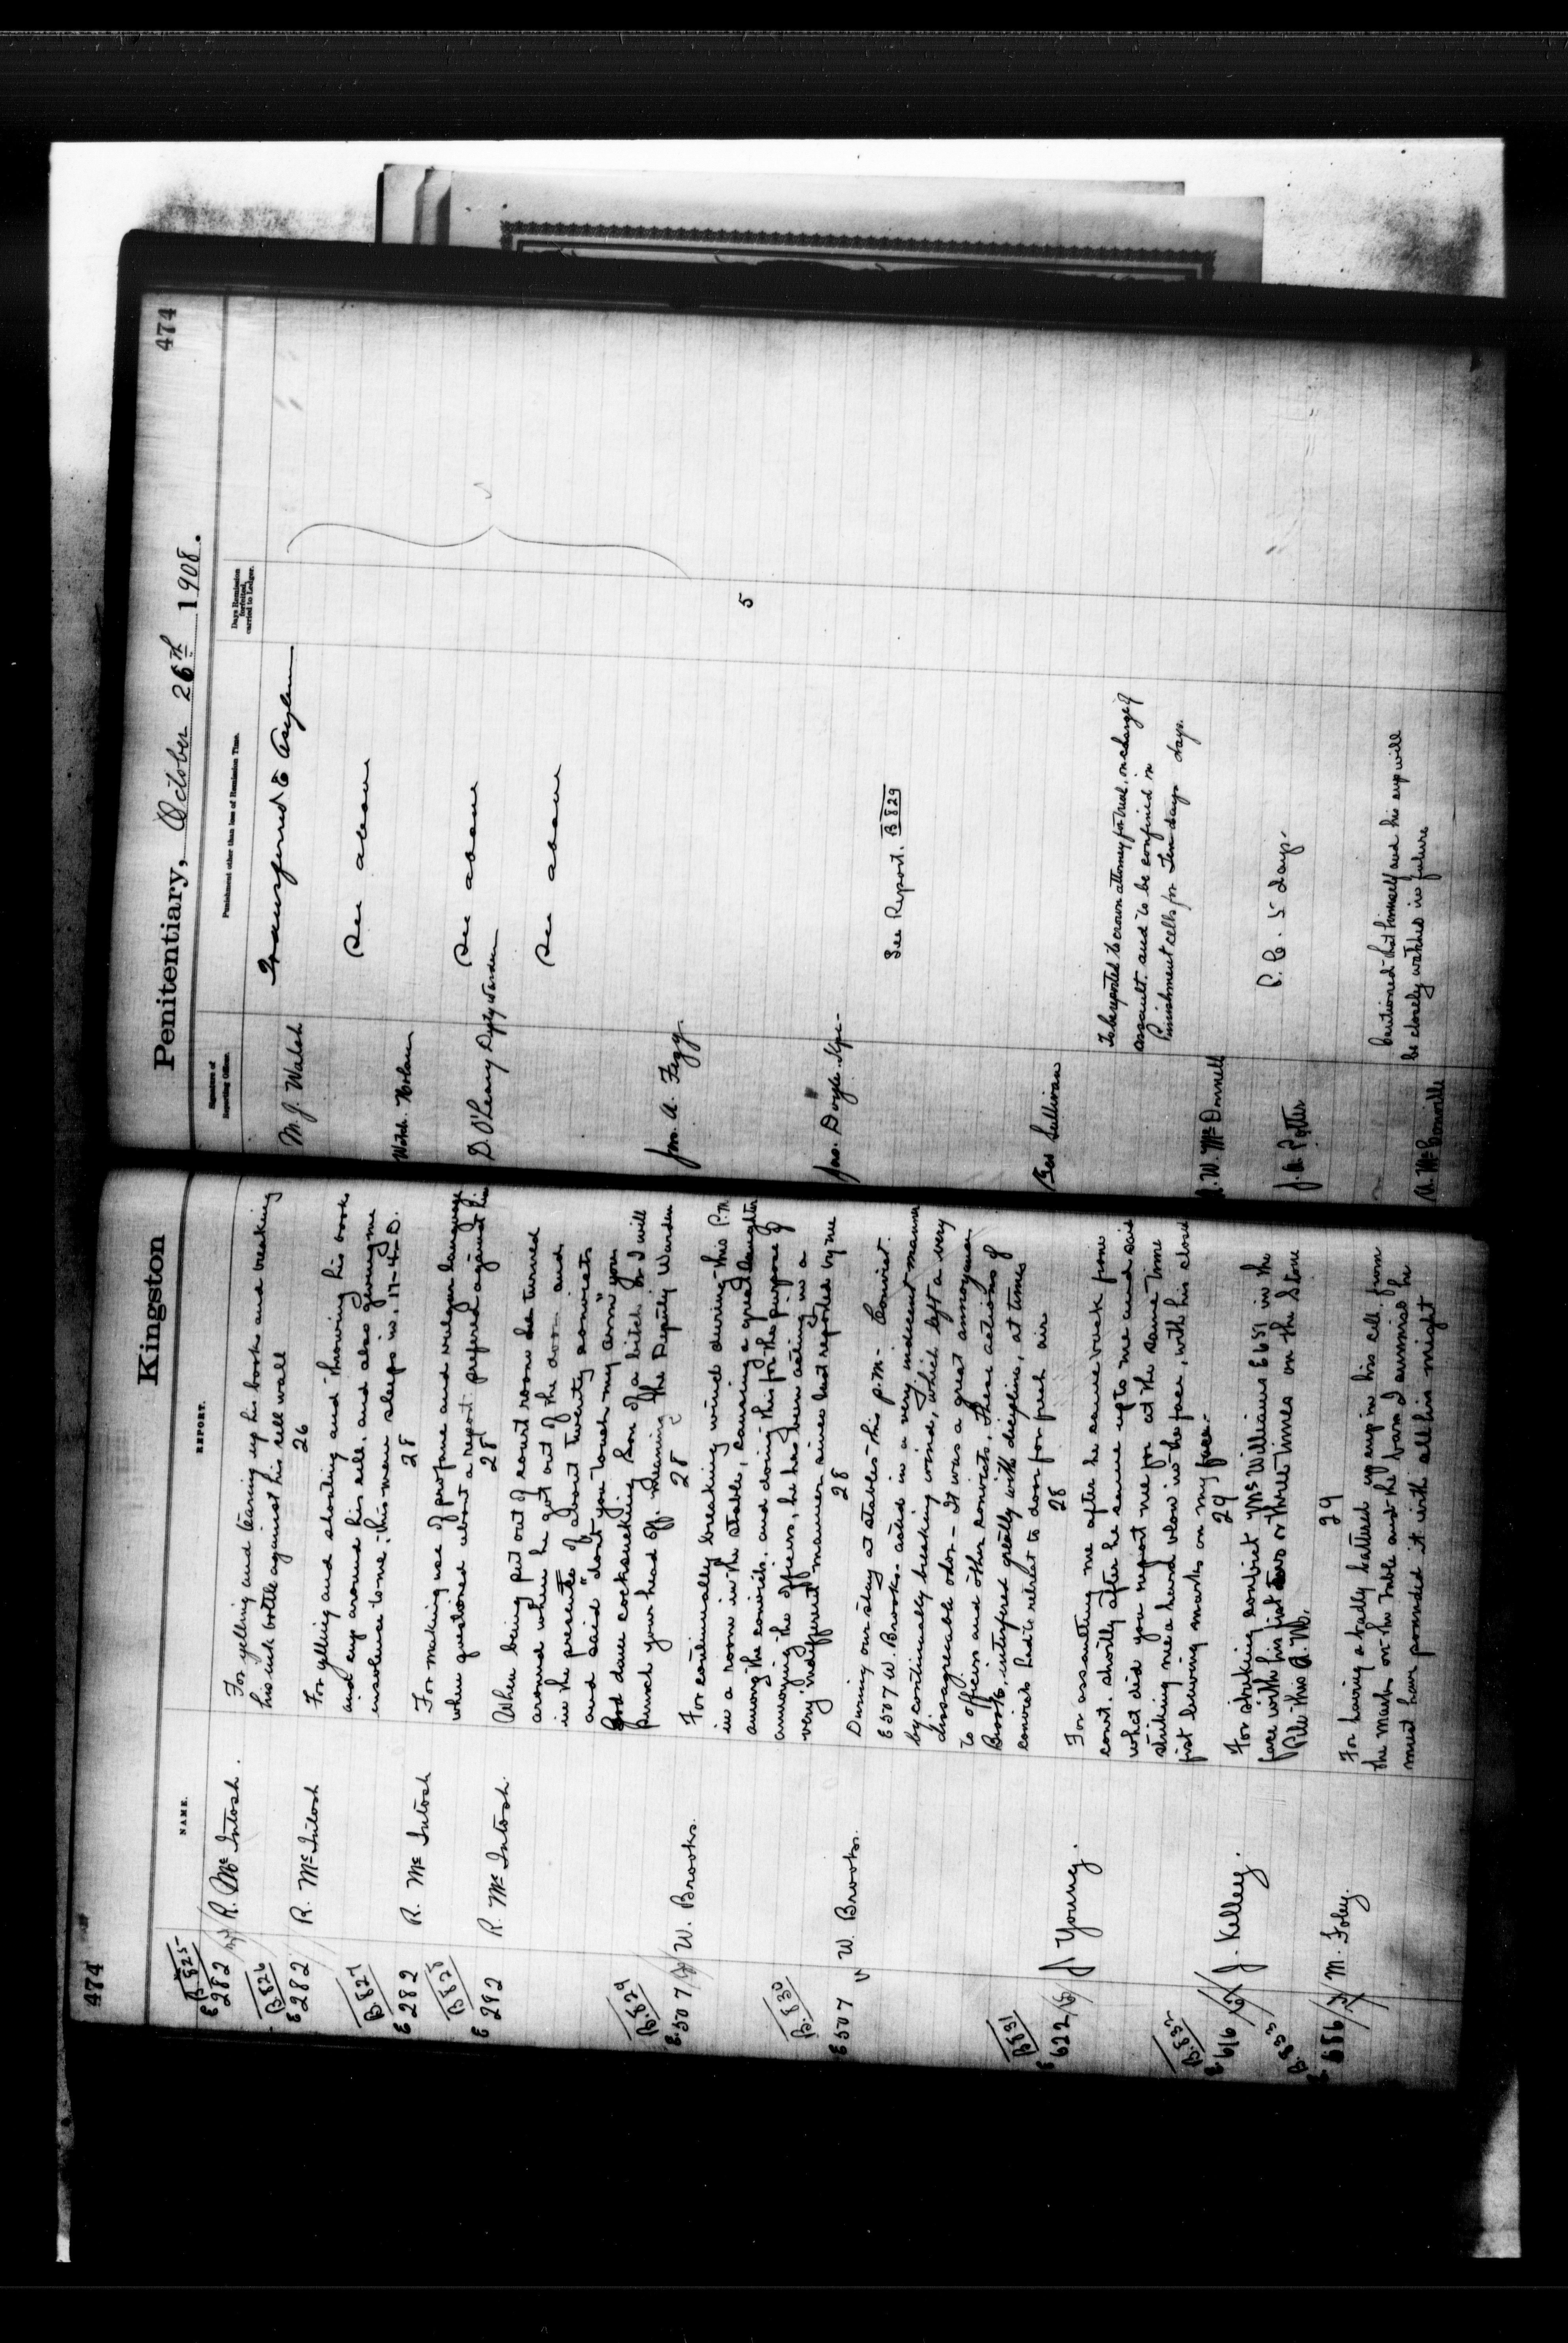 474
Kingston
NAME.
REPORT.
B 825
E 282 R. McIntosh.
For yelling and tearing up his books and breaking
his ink bottle against his cell wall
26
B 826
E 282 R. McIntosh
For yelling and shouting and throwing his books
and cup around his cell. and also giving me
insolence tome; this man sleeps in. 17-4-D.
28
B 827
E 282 R. McIntosh
For making use of profane and vulgar language
when questioned about a report prefered against him
28
B 828
E 282 R. McIntosh.
When being put out of court room he turned
around when he got out of the door and
in the presents of about twenty convicts
and said "dont you touch my arm" you
God dam cocksucking Son of a bitch or I will
punch your head off. meaning the Deputy Warden
28
B. 829
E. 507 W. Brooks.
For continually breaking wind during this P.M.
in a room in the stable, causing a great laughter
among the convicts. and doing this for the purpose of
annoying the officers, he has been acting in a
very indifferent manner since last reported by me
28
B. 830
E 507 W. Brooks.
During our stay at stables this p.m. Convict.
E 507 W. Brooks. acted in a very indecent manner
by continually breaking wind, which left a very
disagreeable odor - It was a great annoyance
to officers and other convicts. These actions of
Brooks, interfered greatly with discipline, at times
convicts had to retreat to door for fresh air
28
B 831
E 622 J Young.
For assaulting me after he came back from
court. shortly after he came up to me and said
what did you report me for at the same time
striking me a hard blow in the face, with his closed
fist leaving marks on my face.
29
B. 832
E 616 J. Kelley.
For striking convict McWilliams E 651 in the
face with his fist two or three times on the Stone
Pile this A.M.
B. 833
E. 686 M. Foley.
29
For having a badly battered up cup in his cell. from
the marks on the table and the bars I surmise he
must have pounded it with all his might
Penitentiary, October 26th 1908.
474
Signature of
Reporting Officer.
Punishment other than loss of Remission Time.
Days Remission
forfeited,
carried to Ledger.
M. J. Walsh
Transferred to Asylum
Mich. Nolan
See above
D. O'Leary Dpty Warden
See above
See above
Jno. A. Fegg.
5
Jas. Doyle
See Report. B 829
Sullivan
To be reported to crown attorney for trial. on charge of
assault. and to be confined in
Punishment cells for Ten days days.
W. McDonnell
J. A. Potter
P. C. 5 days.
Cautioned that himself and his cup will
be closely watched in future
A. McConville